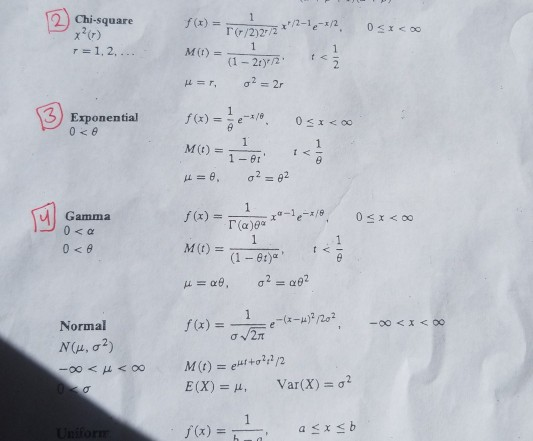 2 Chi-square f(x) = 1/(Γ(r/2)2^{r/2}) x^{r/2−1}e^{−x/2}, 0 ≤ x < ∞
χ²(r)
r = 1, 2, ... M(t) = 1/(1 − 2t)^{r/2}, t < 1/2
μ = r, σ² = 2r
3 Exponential f(x) = 1/θ e^{−x/θ}, 0 ≤ x < ∞
0 < θ
M(t) = 1/(1 − θt), t < 1/θ
μ = θ, σ² = θ²
4 Gamma f(x) = 1/(Γ(α)θ^α) x^{α−1}e^{−x/θ}, 0 ≤ x < ∞
0 < α
0 < θ M(t) = 1/(1 − θt)^α, t < 1/θ
μ = αθ, σ² = αθ²
Normal f(x) = 1/(σ√2π) e^{−(x−μ)²/2σ²}, −∞ < x < ∞
N(μ, σ²)
−∞ < μ < ∞ M(t) = e^{μt+σ²t²/2}
0 < σ E(X) = μ, Var(X) = σ²
Uniform f(x) = 1/(b − a), a ≤ x ≤ b